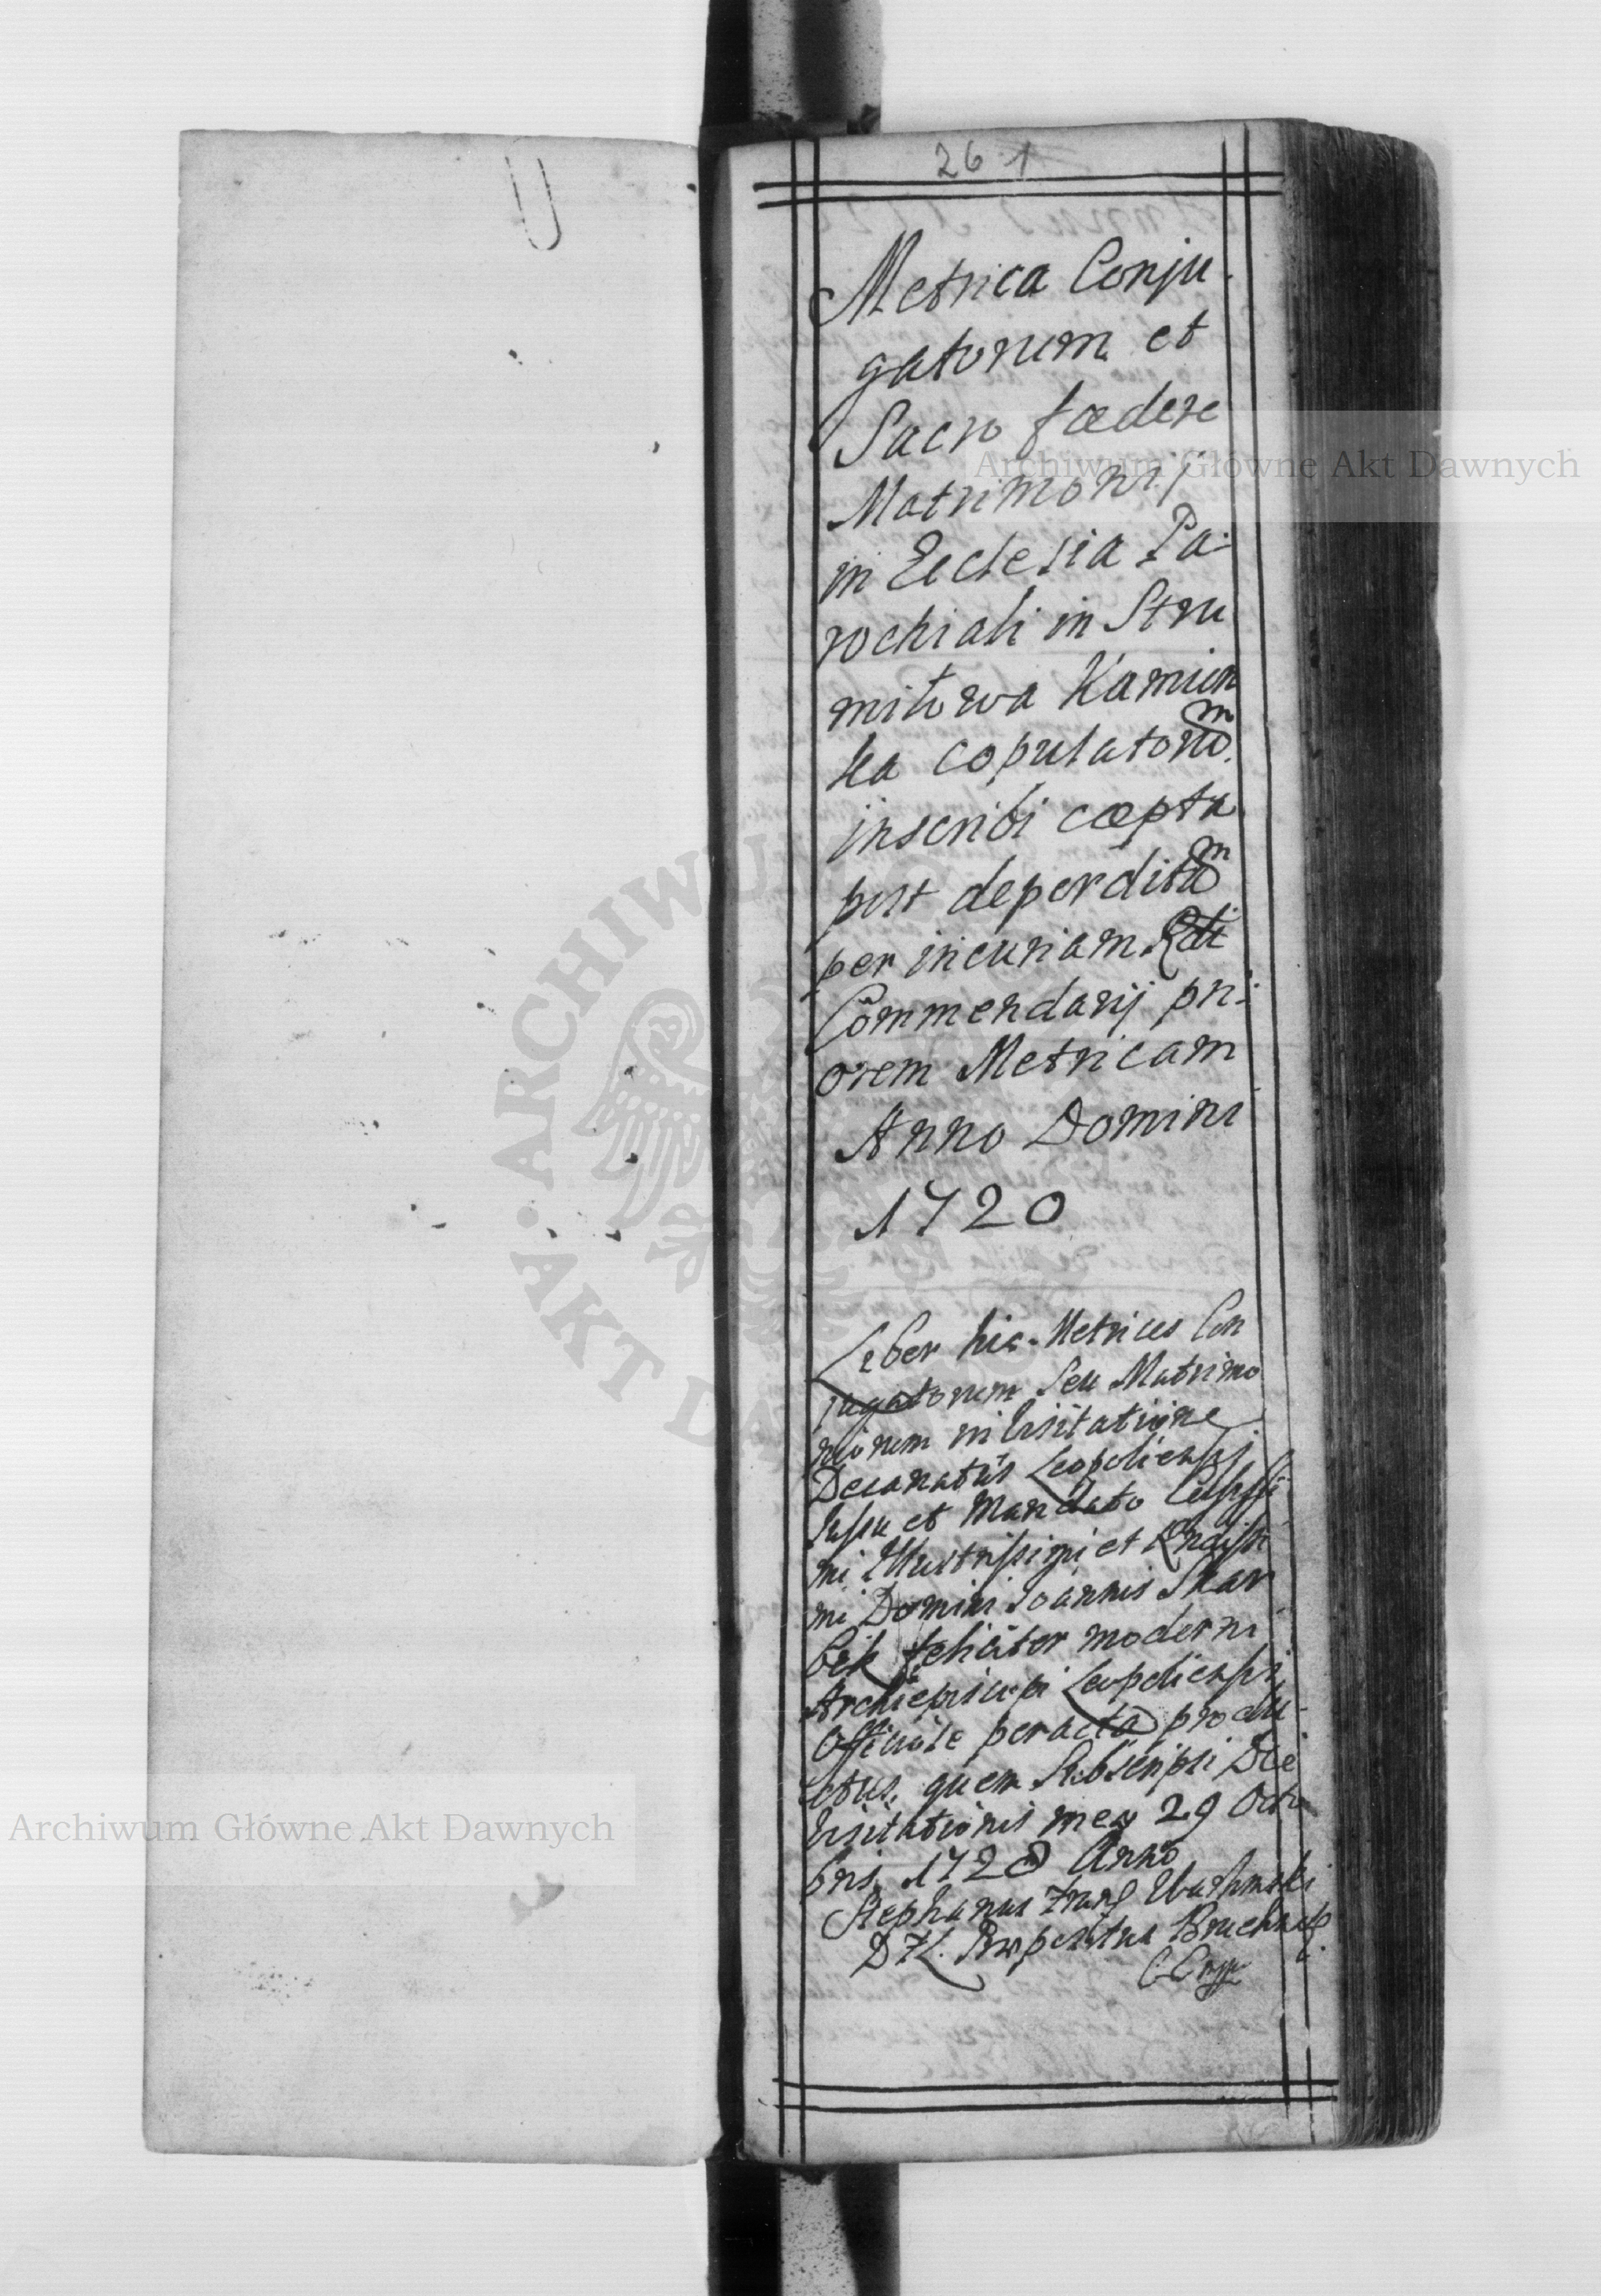 26 1
Metrica Conju-
gatorum et
Sacro fœdere
Matrimonij
in Ecclesia Pa-
rochiali in Stru
mitowa Kamien
ka copulatorum
inscribi cœpta
post deperditam
per incuriam Rdi
Commendarij pri-
orem Metricam
Anno Domini
1720
Liber hic Metrices Con
jugatorum seu Matrimo
niorum in Visitatione
Decanatus Leopoliensis
Jussu et Mandato
mi Illustrissimi et Rndissi
mi Domini Joannis Skar
bek feliciter moderni
Archiepiscopi Leopoliensis
Officiose peracta produ-
ctus, quem Subscripsi Die
Visitationis mea 29 Octo
bris 1720 Anno
Stephanus
Præpositus
Archiwum Główne Akt Dawnych
Archiwum Główne Akt Dawnych
ARCHIWUM
AKT